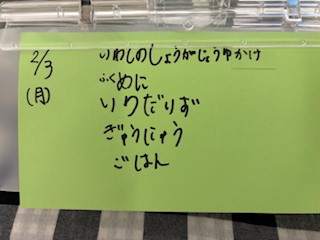 2/3
(月)
いわしのしょうがじょうゆかけ
ふくめに
いりだいず
ぎゅうにゅう
ごはん